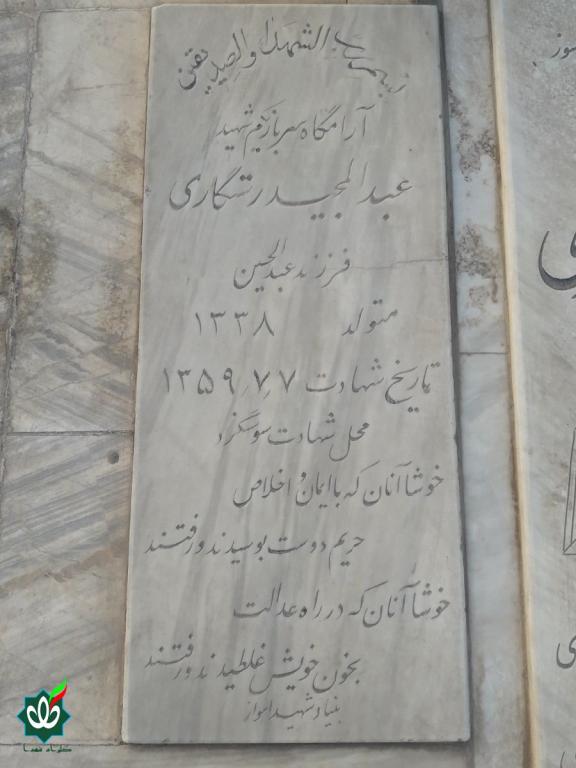 بسم رب الشهداء والصدیقین
آرامگاه سرباز شهید
عبدالمجید رستگاری
فرزند عبدالحسین
متولد ۱۳۳۸
تاریخ شهادت ۱۳۵۹٫۷٫۷
محل شهادت سوسنگرد
خوشا آنان که با ایمان و اخلاص
حریم دوست بوسیدند و رفتند
خوشا آنان که در راه عدالت
بخون خویش غلطیدند و رفتند
بنیاد شهید اهواز